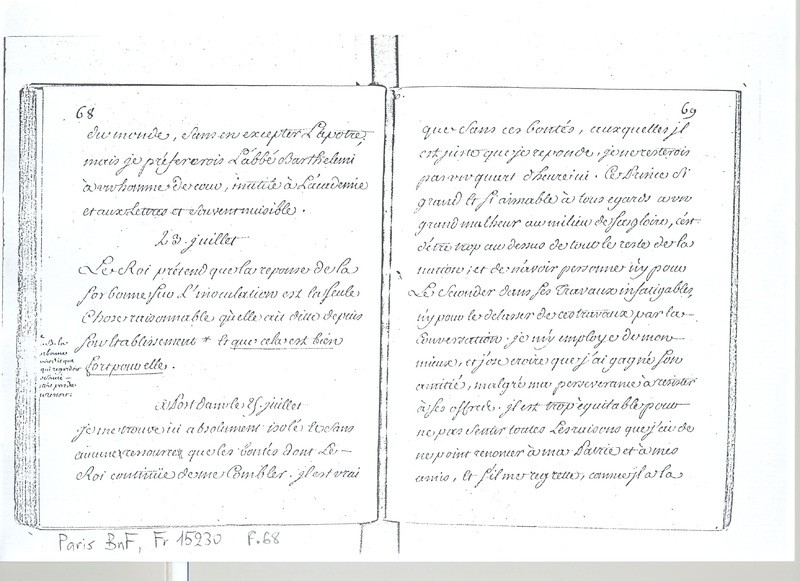 68
du monde, sans en excepter L'apotre,
mais je préfererois L'abbé Barthelemi
à un homme de cour, inutile à L'académie
et aux Lettres et souvent nuisible.
23. juillet
Le Roi prétend que la reponse de la
sorbonne sur L'inoculation est la seule
chose raisonnable qu'elle ait ditte depuis
son Etablissement * et que cela est bien
fort pour elle.
à Postdam le 25. juillet
je me trouve ici absolument isolé et sans
aucune ressource que les bontés dont Le
Roi continüe de me Combler. jl est vrai
69
que sans ces bontés, auxquelles jl
est juste que je reponde, je ne resterois
pas un quart d'heure ici. Ce Prince si
grand et si aimable à tous egards a un
grand malheur au milieu de sa gloire, c'est
d'être trop au dessus de tout le reste de la
nation; et de n'avoir personne n'y pour
Le Seconder dans ses travaux infatigables,
n'y pour le délasser de ces travaux par la
Conversation. je m'y employe de mon
mieux, et j'ose croire que j'ai gagné son
amitié, malgré ma perseverance à resister
à ses offres. jl est trop equitable pour
ne pas sentir toutes Les raisons que j'ai de
ne point renoncer à ma Patrie et à mes
amis, et s'il me regrette, comme jl a la
Paris BnF, Fr 15230 F.68